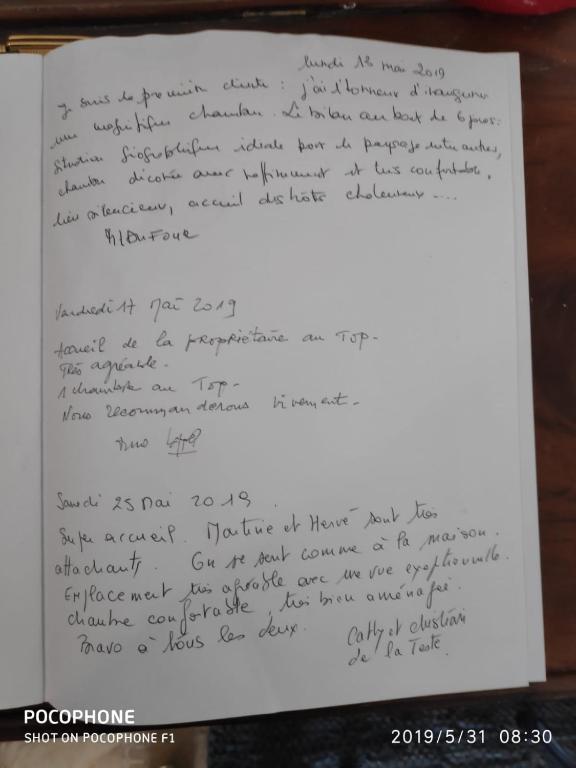 lundi 13 mai 2019
je suis la première cliente : j'ai l'honneur d'inaugurer
une magnifique chambre. Le bilan au bout de 6 jours :
situation géographique idéale pour le paysage entre autres,
chambre décorée avec raffinement et très confortable,
lieu silencieux, accueil des hôtes chaleureux ....
M DUFOUR
Vendredi 17 Mai 2019
Accueil de la propriétaire au Top -
Très agréable -
1 chambre au Top -
Nous recommanderons vivement -
Samedi 25 Mai 2019.
Super accueil. Martine et Hervé sont très
attachants. On se sent comme à la maison.
Emplacement très agréable avec une vue exceptionnelle.
chambre confortable, très bien aménagée.
Bravo à tous les deux.
Cathy et Christian
de la Teste.
POCOPHONE
SHOT ON POCOPHONE F1
2019/5/31 08:30